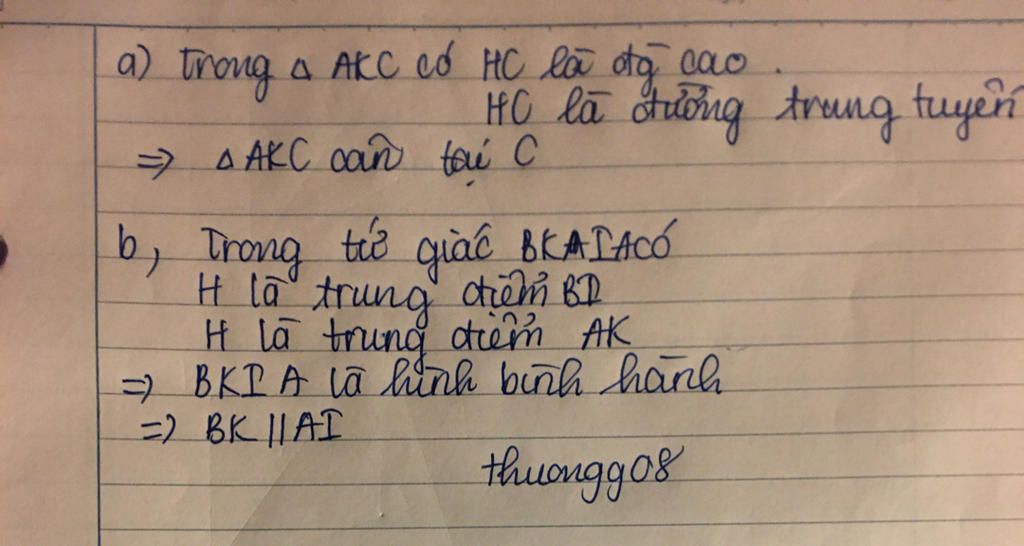 a) Trong △ AKC có HC là đg cao.
HC là đường trung tuyến
=> △ AKC cân tại C
b, Trong tứ giác BKAIA có
H là trung điểm BI
H là trung điểm AK
=> BKIA là hình bình hành
=> BK // AI
thuongg08